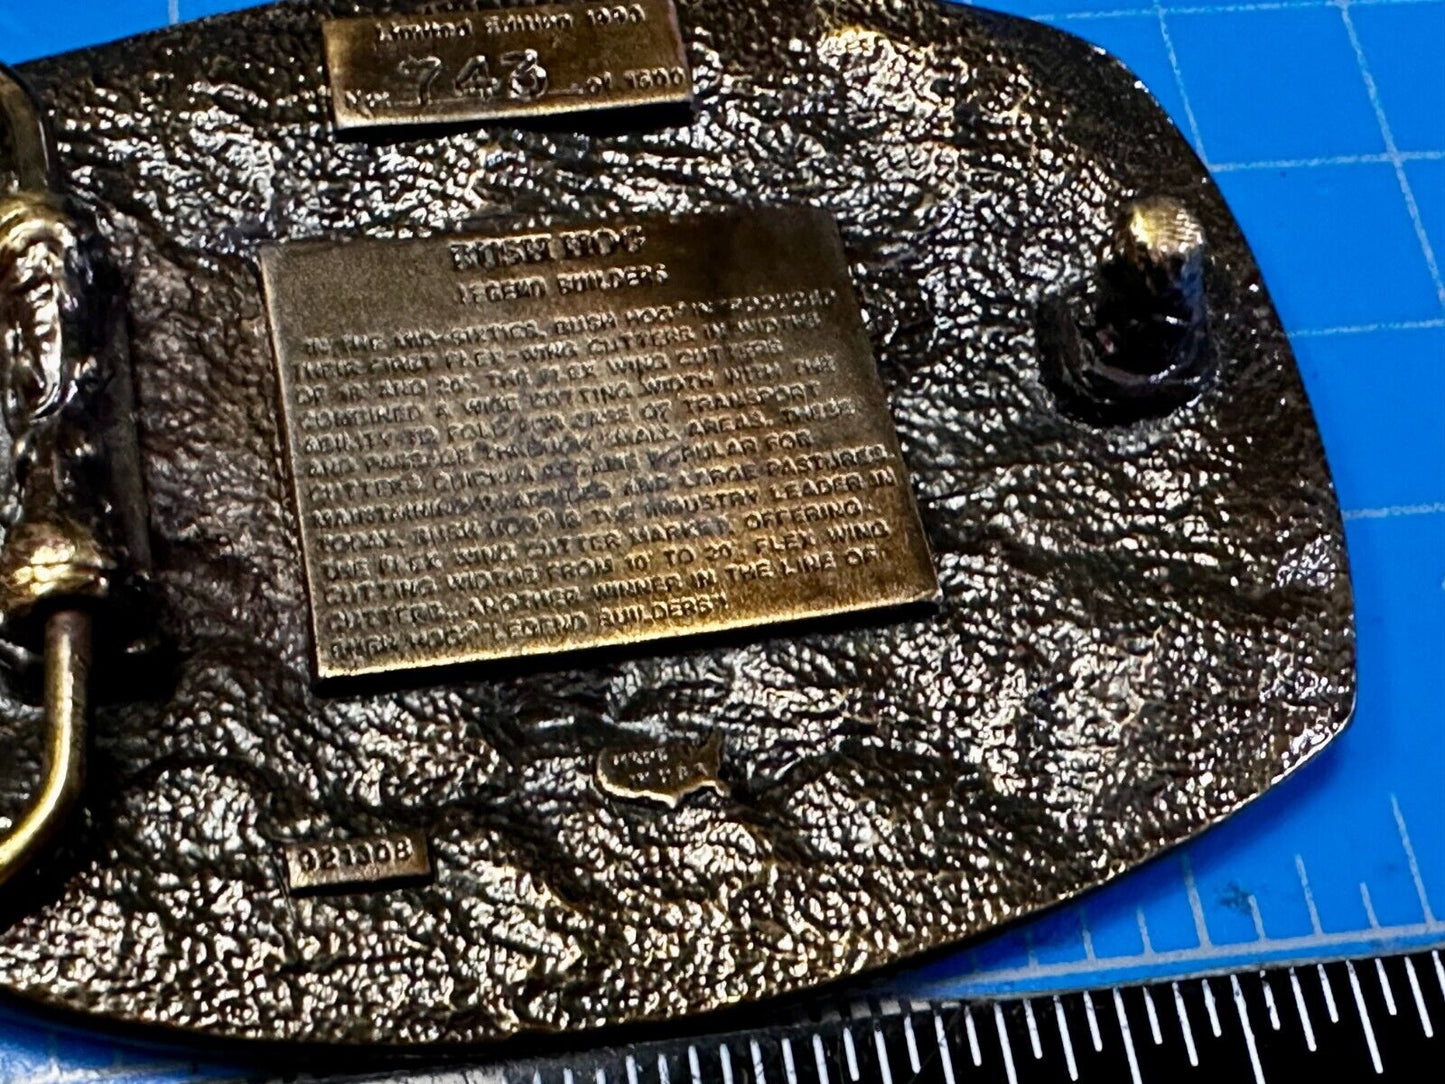 Limited Edition
No. 743 of 1500
BUSH HOG
LEGEND BUILDERS
IN THE MID-SIXTIES, BUSH HOG INTRODUCED
THEIR FIRST FLEX-WING CUTTERS IN WIDTHS
OF AND 20'. THE FLEX WING CUTTERS
COMBINED A WIDE CUTTING WIDTH WITH THE
ABILITY TO FOLD FOR EASE OF TRANSPORT
AND PASSAGE THROUGH SMALL AREAS. THESE
CUTTERS QUICKLY BECAME POPULAR FOR
MAINTAINING AND LARGE PASTURES.
TODAY, BUSH HOG IS THE INDUSTRY LEADER IN
THE FLEX WING CUTTER MARKET, OFFERING
CUTTING WIDTHS FROM 10' TO 20'. FLEX WING
CUTTERS...ANOTHER WINNER IN THE LINE OF
BUSH HOG "LEGEND BUILDERS"!